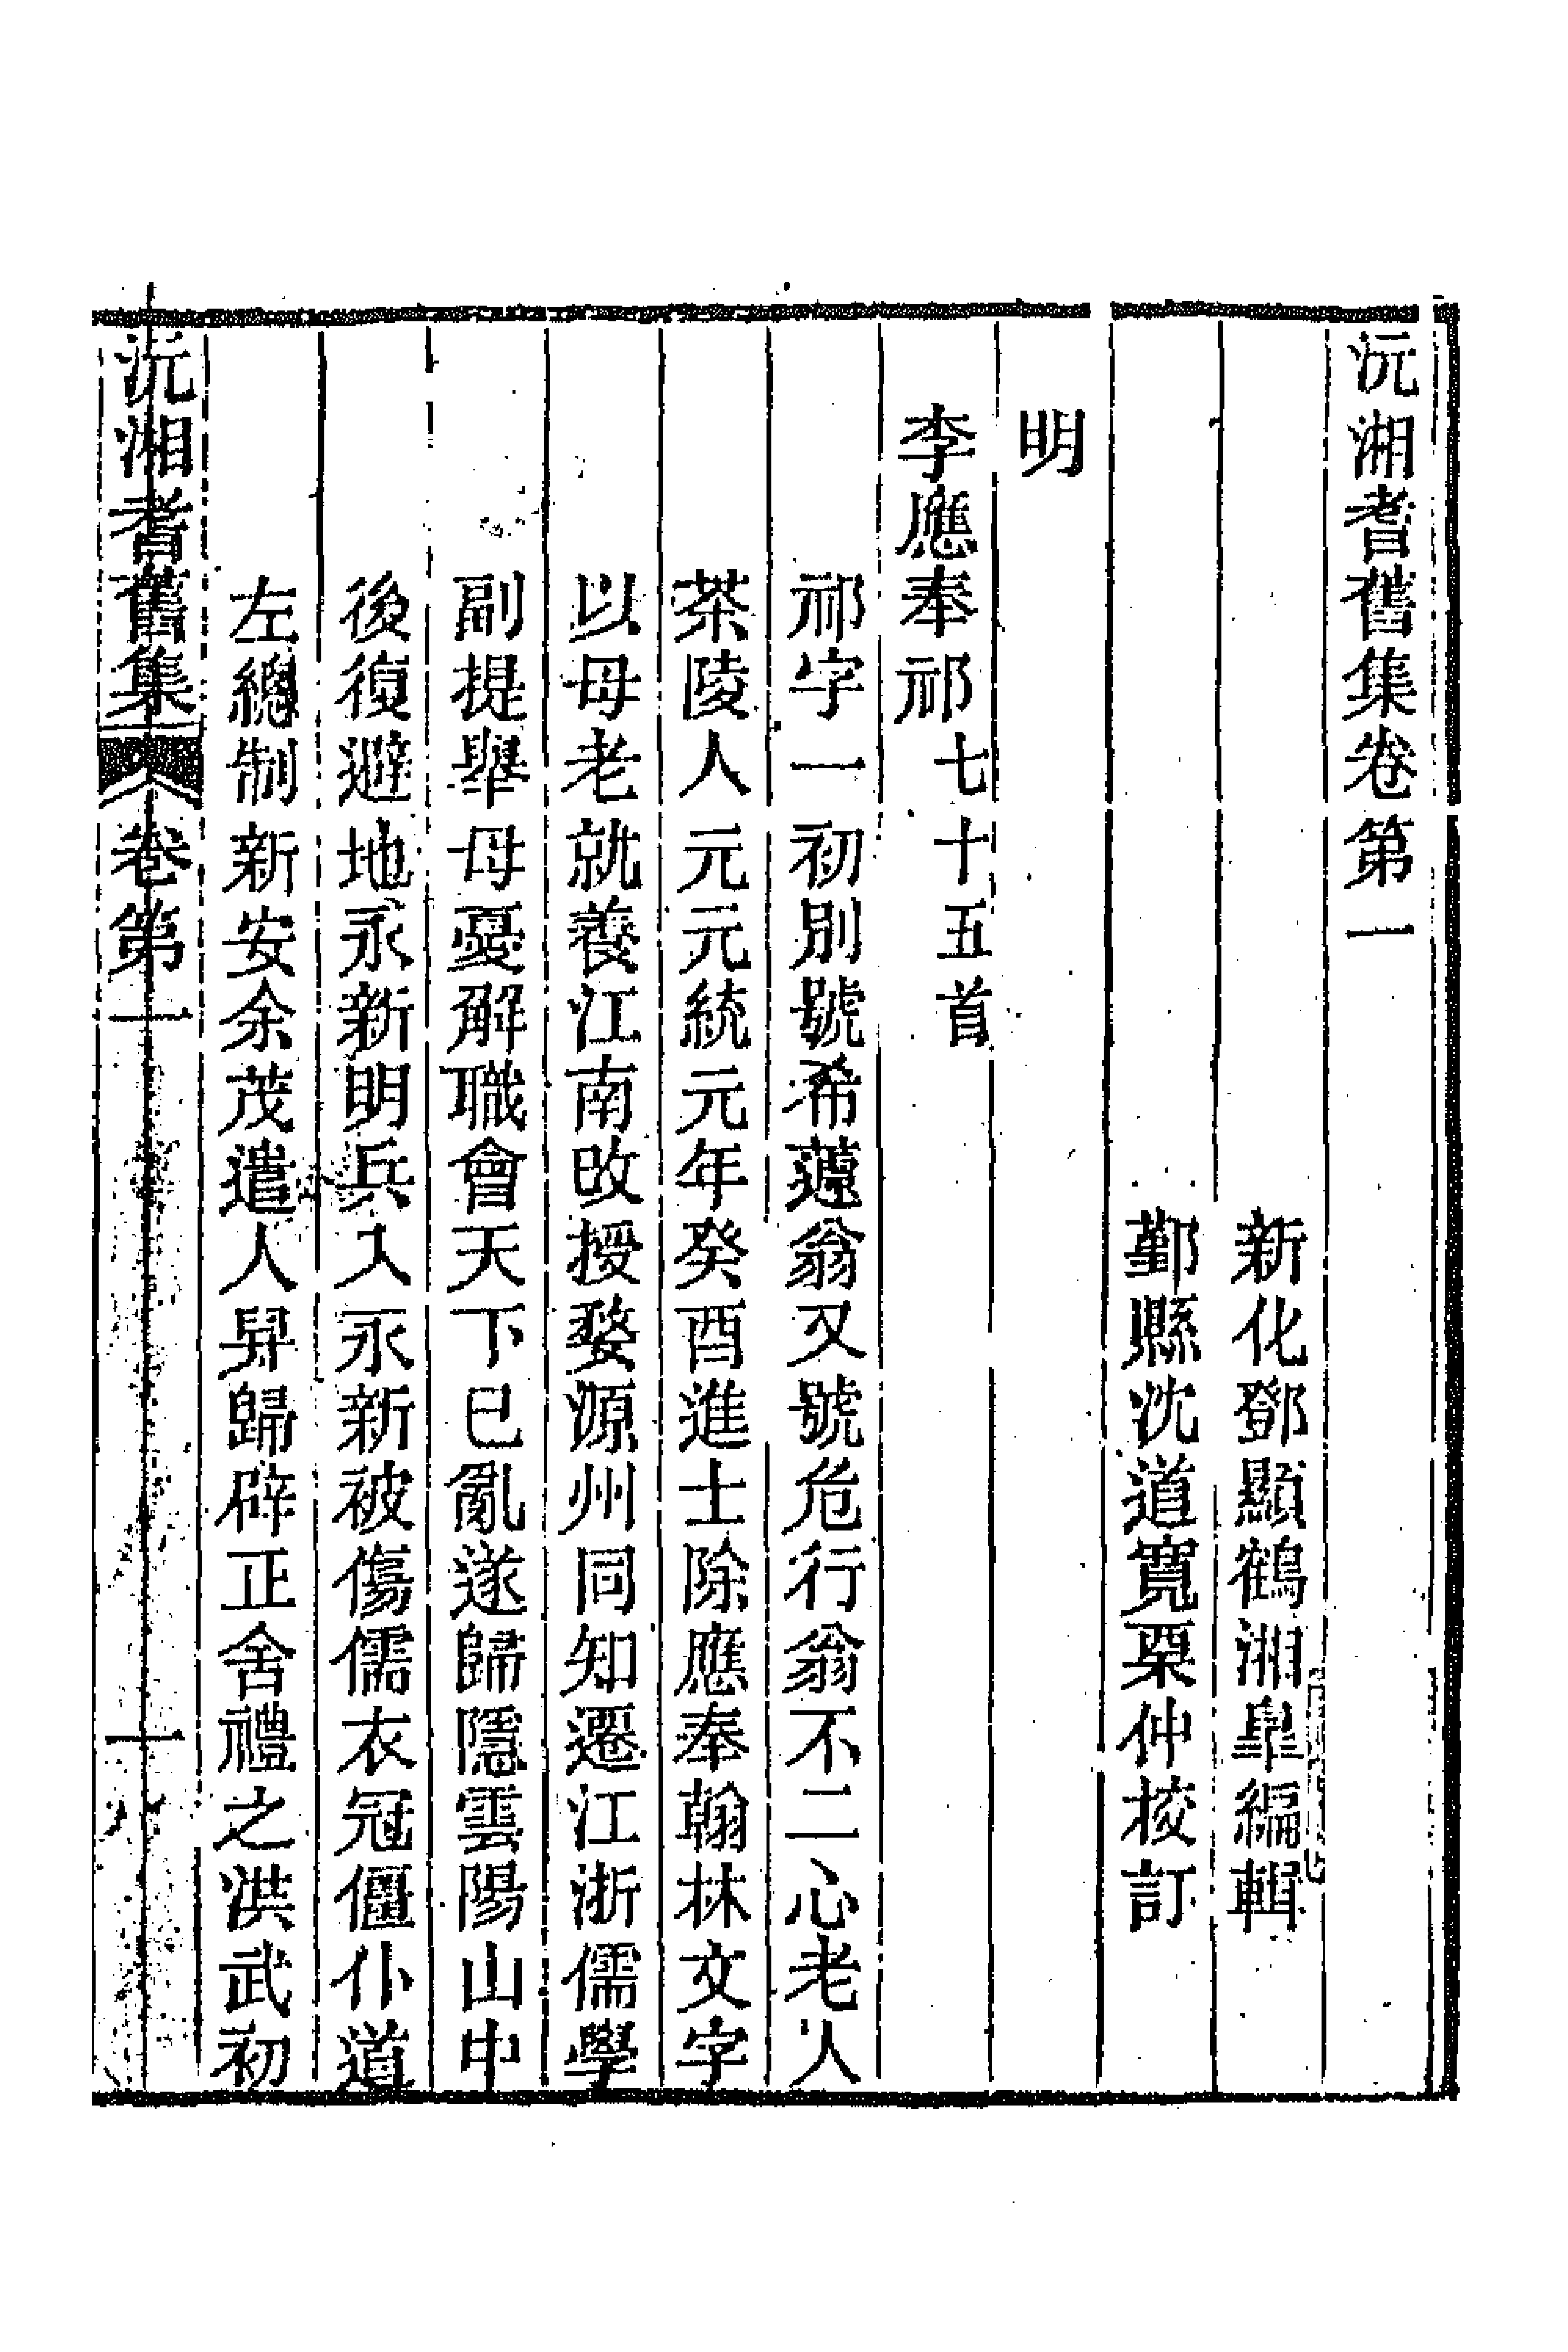 沅湘耆舊集卷第一
新化鄧顯鶴湘臯編輯
鄞縣沈道寬栗仲挍訂
明
李應奉祁七十五首
祁字一初別號希蘧翁又號危行翁不二心老人
茶陵人元元統元年癸酉進士除應奉翰林文字
以母老就養江南改授婺源州同知遷江浙儒學
副提舉母憂解職會天下已亂遂歸隱雲陽山中
後復避地永新明兵入永新被傷儒衣冠僵仆道
左總制新安余茂遣人舁歸辟正舍禮之洪武初
沅湘耆舊集 卷第一 一